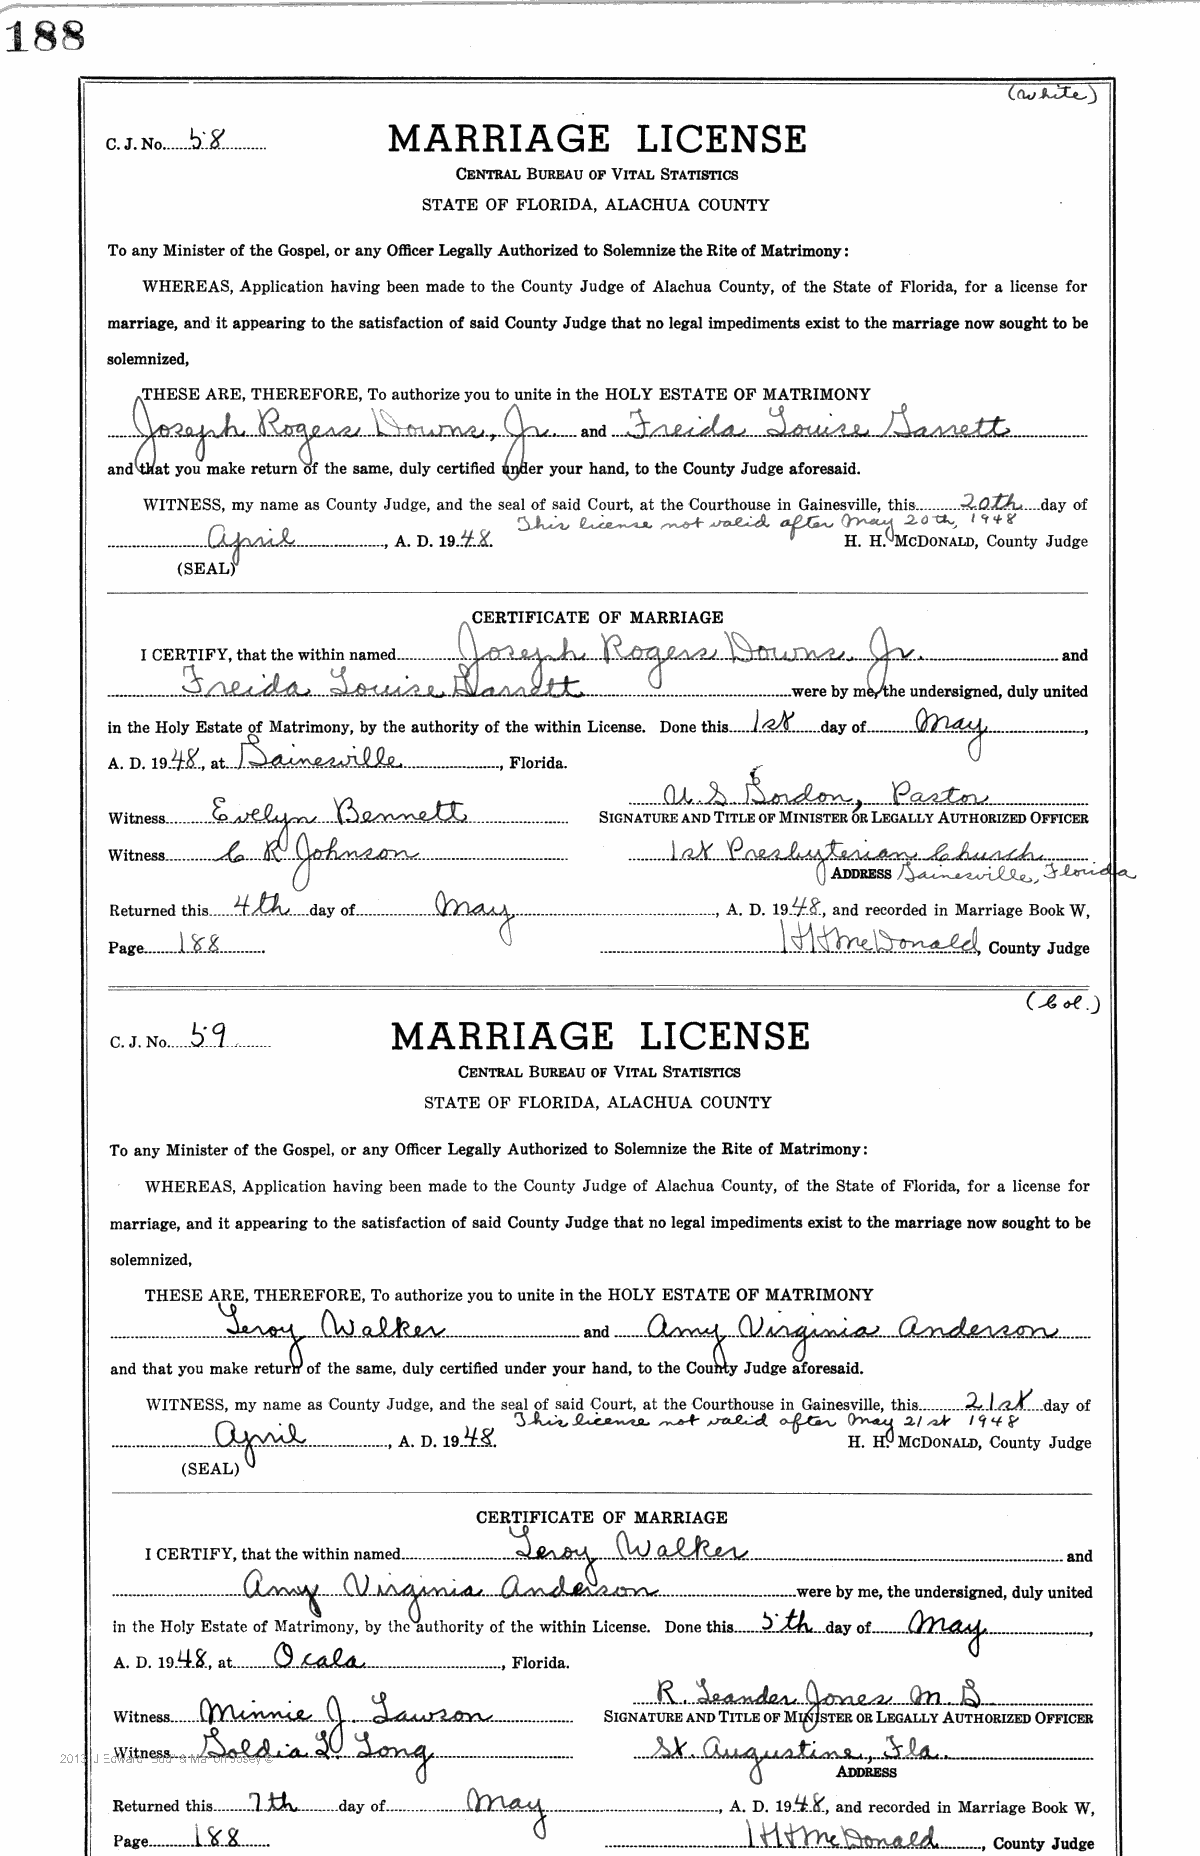 188
(White)
C. J. No. 58
MARRIAGE LICENSE
CENTRAL BUREAU OF VITAL STATISTICS
STATE OF FLORIDA, ALACHUA COUNTY
To any Minister of the Gospel, or any Officer Legally Authorized to Solemnize the Rite of Matrimony:
WHEREAS, Application having been made to the County Judge of Alachua County, of the State of Florida, for a license for
marriage, and it appearing to the satisfaction of said County Judge that no legal impediments exist to the marriage now sought to be
solemnized,
THESE ARE, THEREFORE, To authorize you to unite in the HOLY ESTATE OF MATRIMONY
Joseph Rogers Downs, Jr. and Freida Louise Garrett
and that you make return of the same, duly certified under your hand, to the County Judge aforesaid.
WITNESS, my name as County Judge, and the seal of said Court, at the Courthouse in Gainesville, this 20th day of
This license not valid after May 20th, 1948
April, A. D. 1948. H. H. McDONALD, County Judge
(SEAL)
CERTIFICATE OF MARRIAGE
I CERTIFY, that the within named Joseph Rogers Downs, Jr. and
Freida Louise Garrett were by me, the undersigned, duly united
in the Holy Estate of Matrimony, by the authority of the within License. Done this 1st day of May,
A. D. 1948, at Gainesville, Florida.
U S Gordon, Pastor
Witness Evelyn Bennett SIGNATURE AND TITLE OF MINISTER OR LEGALLY AUTHORIZED OFFICER
Witness C R Johnson 1st Presbyterian Church
ADDRESS Gainesville, Florida
Returned this 4th day of May, A. D. 1948, and recorded in Marriage Book W,
Page 188 H H McDonald, County Judge
(Col.)
C. J. No. 59
MARRIAGE LICENSE
CENTRAL BUREAU OF VITAL STATISTICS
STATE OF FLORIDA, ALACHUA COUNTY
To any Minister of the Gospel, or any Officer Legally Authorized to Solemnize the Rite of Matrimony:
WHEREAS, Application having been made to the County Judge of Alachua County, of the State of Florida, for a license for
marriage, and it appearing to the satisfaction of said County Judge that no legal impediments exist to the marriage now sought to be
solemnized,
THESE ARE, THEREFORE, To authorize you to unite in the HOLY ESTATE OF MATRIMONY
Leroy Walker and Amy Virginia Anderson
and that you make return of the same, duly certified under your hand, to the County Judge aforesaid.
WITNESS, my name as County Judge, and the seal of said Court, at the Courthouse in Gainesville, this 21st day of
This license not valid after May 21st 1948
April, A. D. 1948. H. H. McDONALD, County Judge
(SEAL)
CERTIFICATE OF MARRIAGE
I CERTIFY, that the within named Leroy Walker and
Amy Virginia Anderson were by me, the undersigned, duly united
in the Holy Estate of Matrimony, by the authority of the within License. Done this 5th day of May,
A. D. 1948, at Ocala, Florida.
R. Leander Jones M. G.
Witness Minnie J. Lawson SIGNATURE AND TITLE OF MINISTER OR LEGALLY AUTHORIZED OFFICER
Witness Goldia L. Long St. Augustine, Fla.
ADDRESS
Returned this 7th day of May, A. D. 1948, and recorded in Marriage Book W,
Page 188 H H McDonald, County Judge